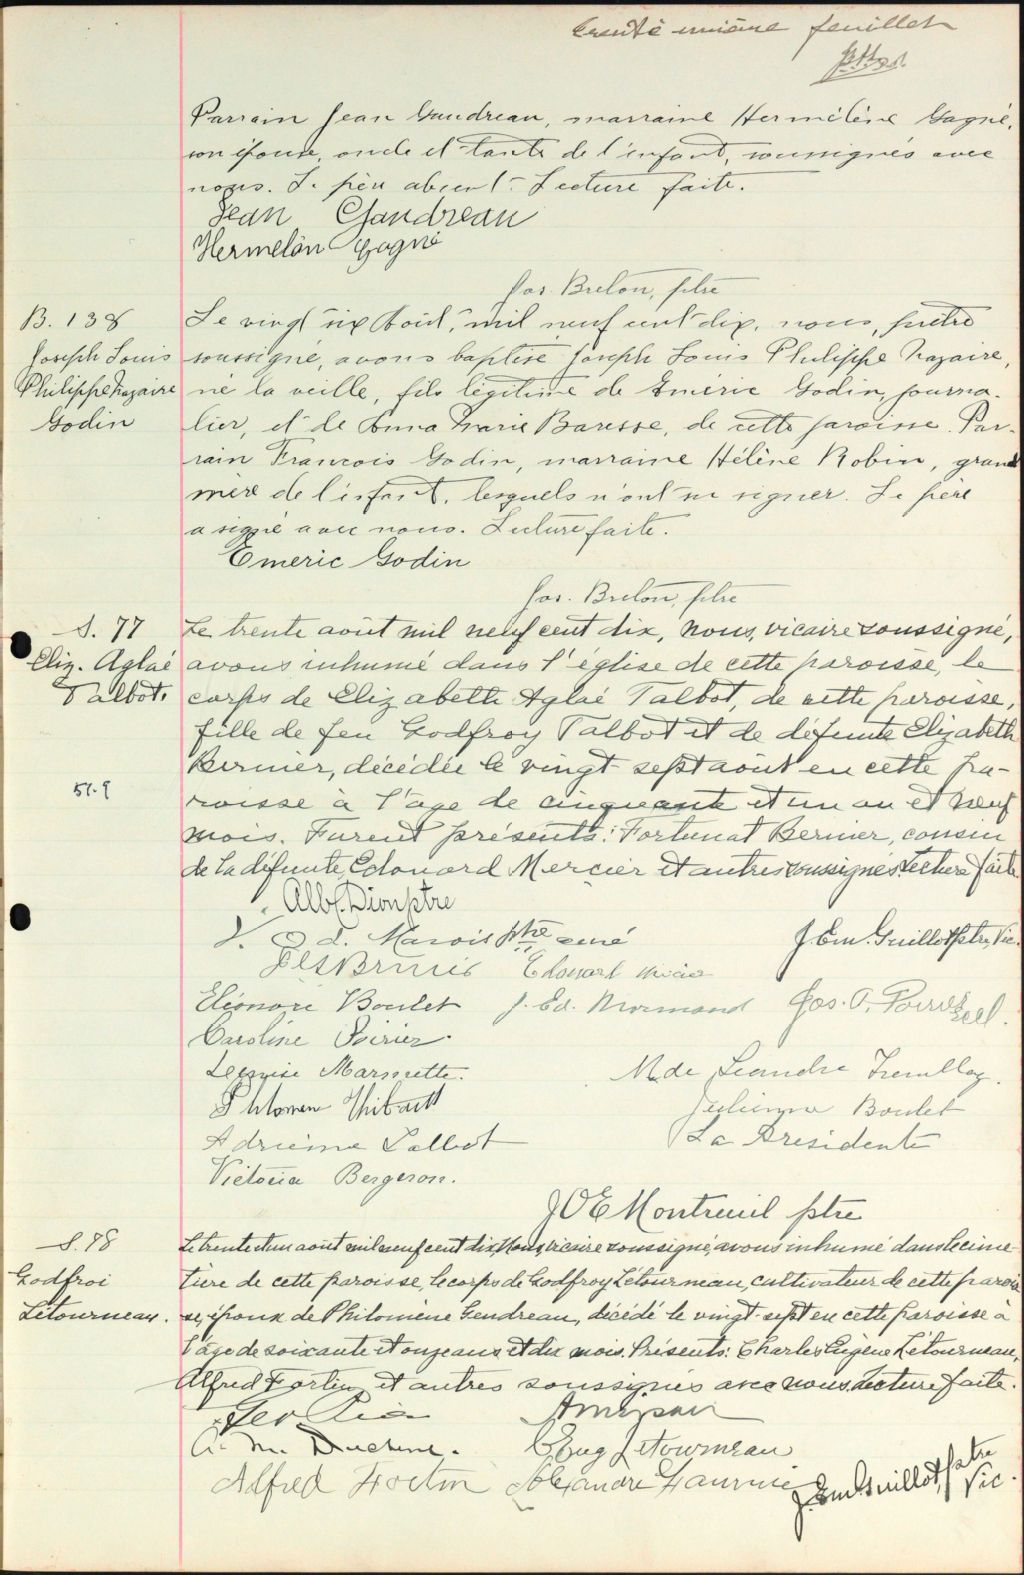 trente unième feuillet
Parrain Jean Gaudreau, marraine Herméline Gagné,
son épouse, oncle et tante de l'enfant, soussignés avec
nous. Le père absent. Lecture faite.
Jean Gaudreau
Hermelin Gagné
Jos. Breton, ptre
B. 138
Joseph Louis
Philippe Nazaire
Godin
Le vingt six Août, mil neuf cent dix, nous, prêtre
soussigné, avons baptisé Joseph Louis Philippe Nazaire,
né la veille, fils légitime de Émeric Godin, journa-
lier, et de Anna Marie Baresse, de cette paroisse. Par-
rain François Godin, marraine Hélène Robin, grand
mère de l'enfant, lesquels n'ont su signer. Le père
a signé avec nous. Lecture faite.
Emeric Godin
Jos. Breton, ptre
S. 77
Eliz. Aglaé
Talbot.
51.9
Le trente août mil neuf cent dix, nous, vicaire soussigné,
avons inhumé dans l'église de cette paroisse, le
corps de Elizabeth Aglaé Talbot, de cette paroisse,
fille de feu Godfroy Talbot et de défunte Elizabeth
Bernier, décédée le vingt-sept août en cette pa-
roisse à l'âge de cinquante et un an et neuf
mois. Furent présents: Fortunat Bernier, cousin
de la défunte, Edouard Mercier et autres soussignés. Lecture faite.
Alb. Dion ptre
V. O. d. Marois ptre curé
J. Em. Guillot, ptre, Vic.
Edouard
Eléonore Boulet J. Ed. Normand Jos. O.
Caroline Poirier.
Marmette.
Mde Leandre Tremblay.
Philomen Thibault
Julienne Boulet
Adrienne Talbot
La Présidente
Victoria Bergeron.
JOE Montreuil ptre
S. 78
Godfroi
Létourneau.
Le trente et un août mil neuf cent dix, Nous, vicaire soussigné, avons inhumé dans le cime-
tière de cette paroisse, le corps de Godfroy Létourneau, cultivateur de cette parois
se, époux de Philomène Gendreau, décédé le vingt-sept en cette paroisse à
l'âge de soixante et onze ans et dix mois. Présents: Charles Eugène Létourneau,
Alfred Fortin et autres soussignés avec nous. Lecture faite.
A. M. Duchene. C Eug Letourneau
Alfred Fortin Alexandre Fournier
J. Em. Guillot, ptre
Vic.